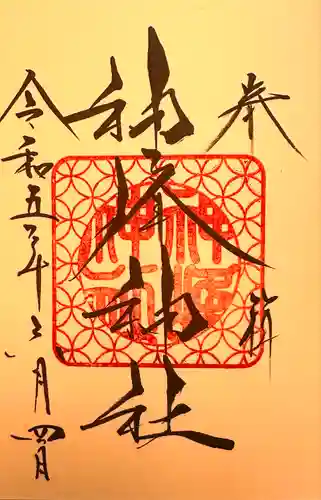 奉拝
神塚神社
令和五年 月四日